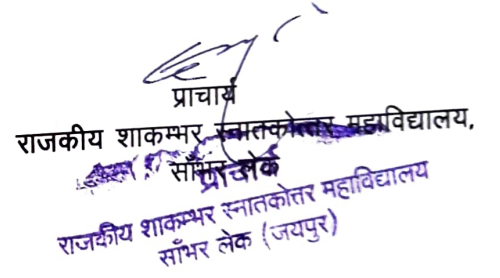 प्राचार्य
राजकीय शाकम्भर स्नातकोत्तर महाविद्यालय,
साँभर लेक
प्राचार्य
राजकीय शाकम्भर स्नातकोत्तर महाविद्यालय
साँभर लेक (जयपुर)